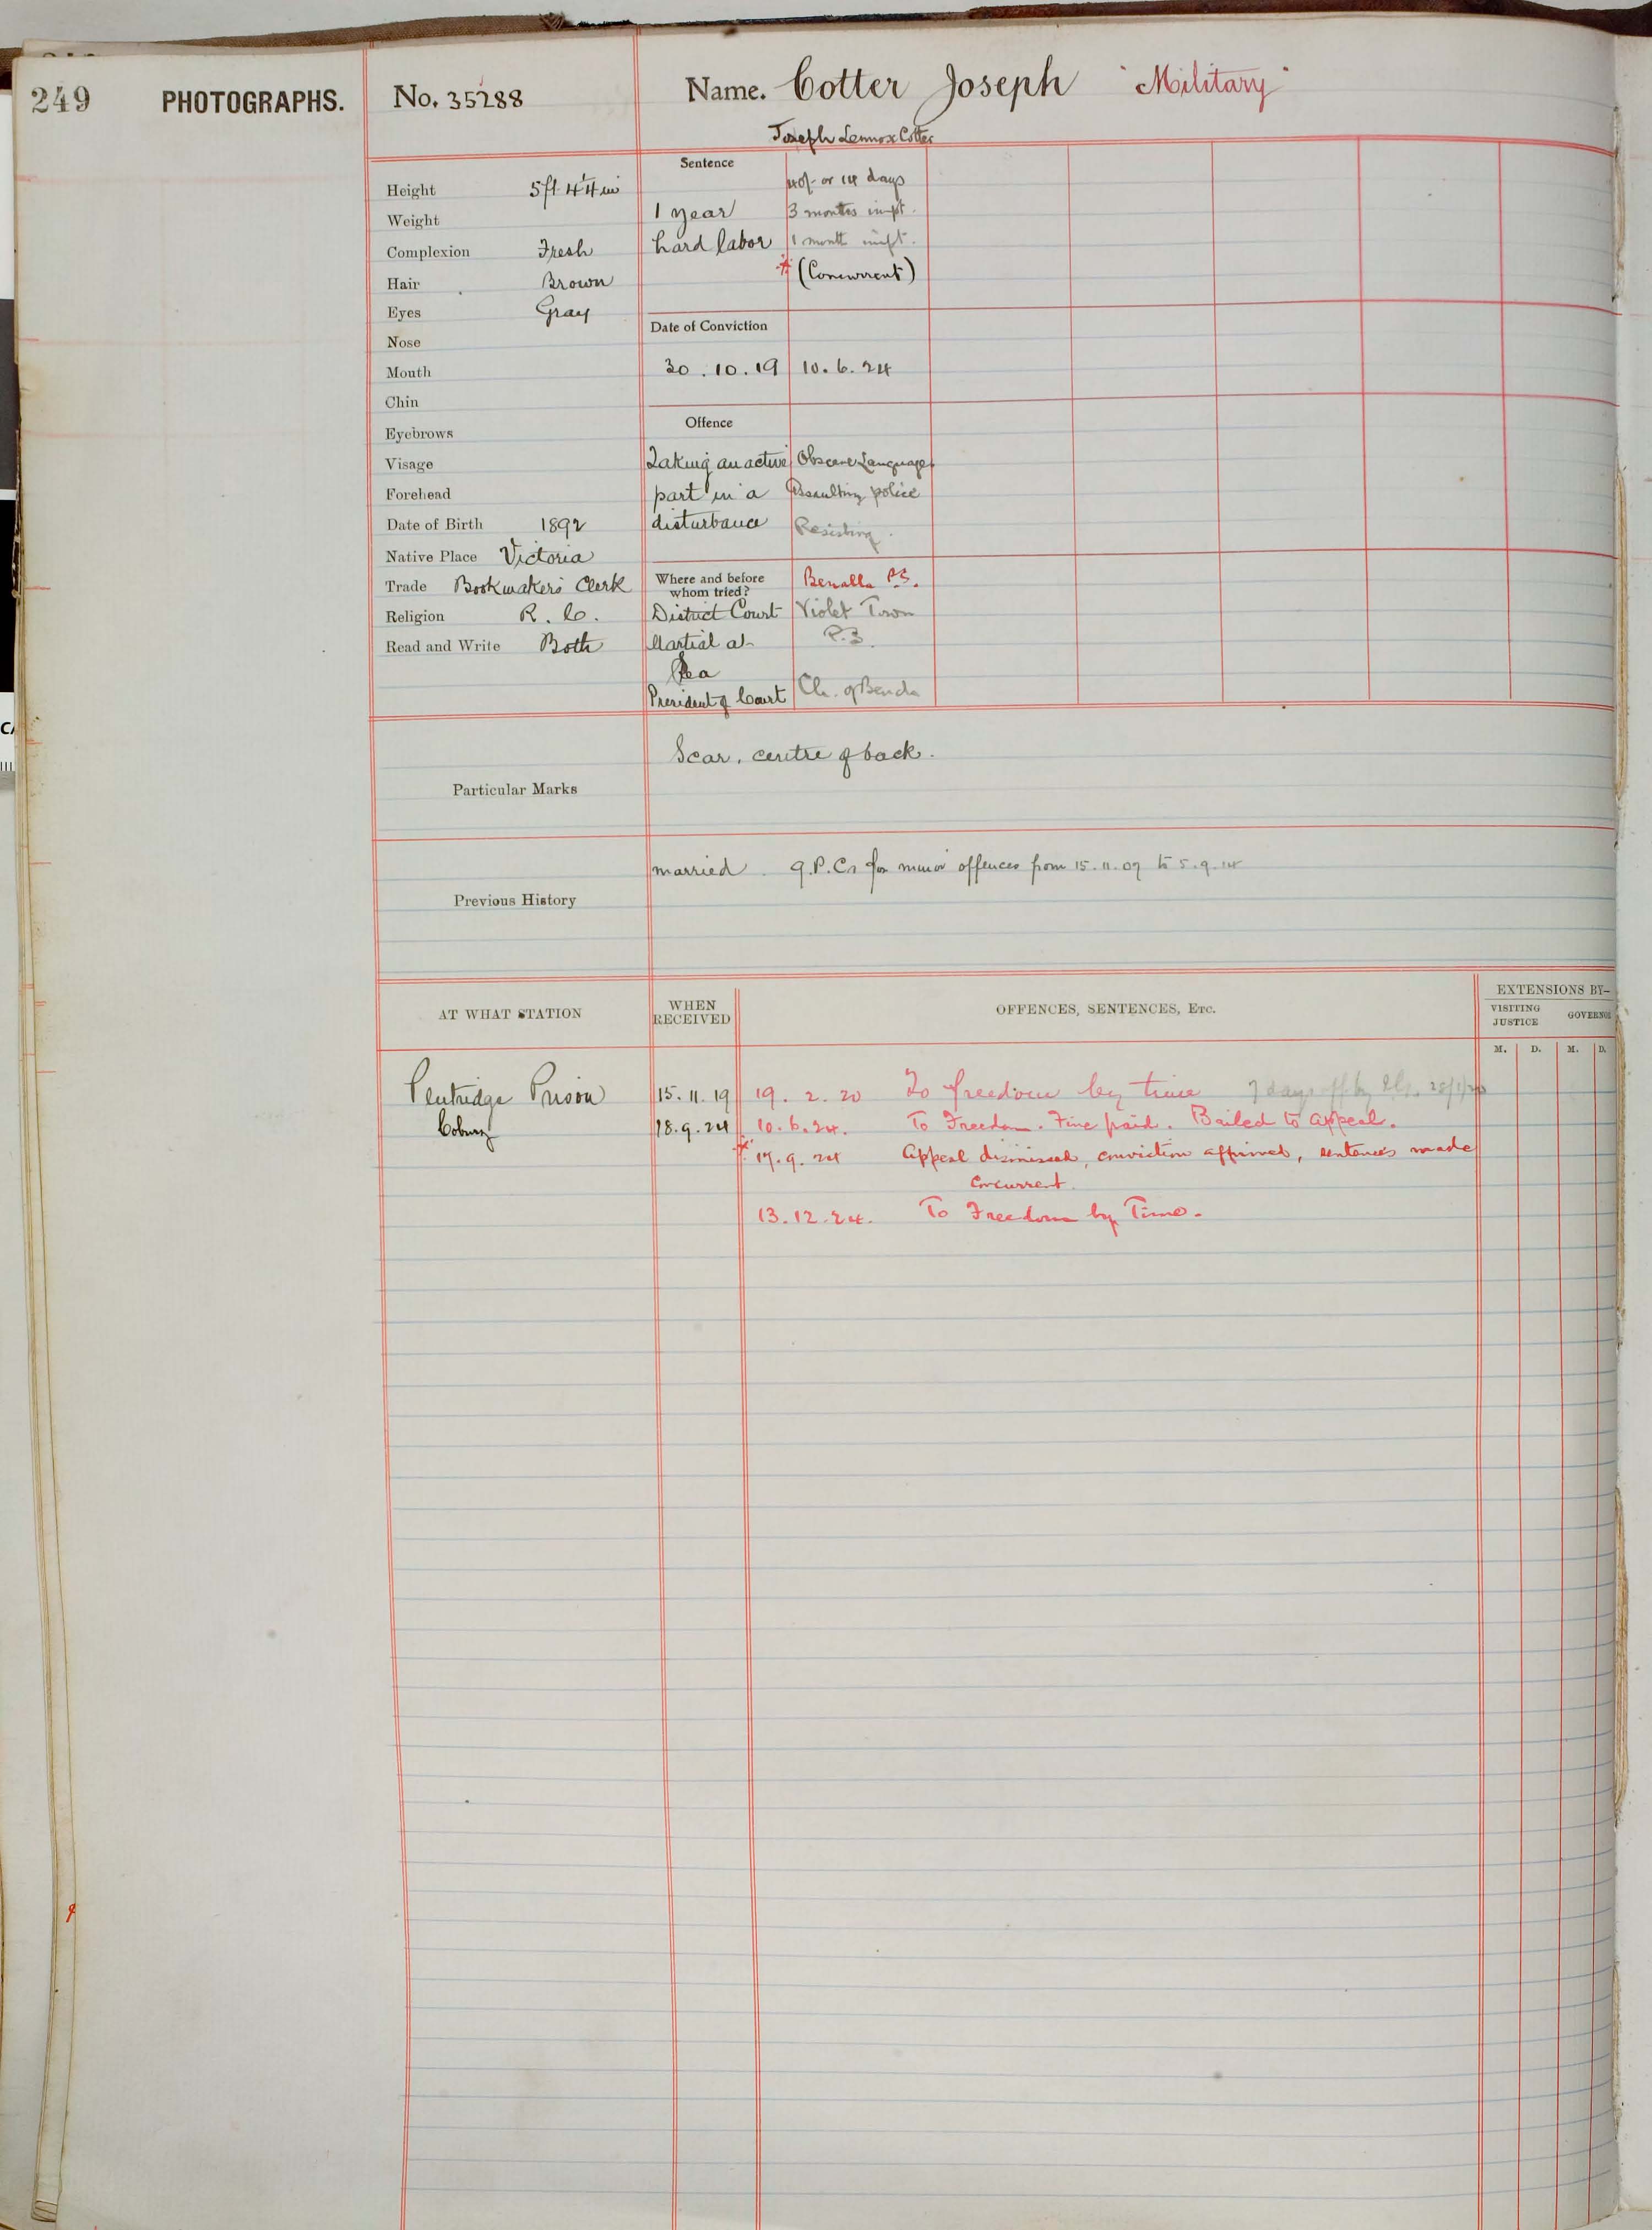 249
PHOTOGRAPHS.
No. 35288
Name. Cotter Joseph "Military"
Joseph Lennox Cotter
Height 5ft 4¼ in
Weight
Complexion Fresh
Hair Brown
Eyes Gray
Nose
Mouth
Chin
Eyebrows
Visage
Forehead
Date of Birth 1892
Native Place Victoria
Trade Bookmakers Clerk
Religion R. C.
Read and Write Both
Sentence
1 year
hard labor
40/- or 14 days
3 months impt.
1 month impt.
* (Concurrent)
Date of Conviction
30.10.19
10.6.24
Offence
Taking an active
part in a
disturbance
Obscene Language
Assaulting police
Resisting.
Where and before
whom tried?
District Court
Martial at
Sea
President of Court
Benalla P.S.
Violet Town
Ch. of Bench
Particular Marks
Scar, centre of back.
Previous History
married. 9.P.Cs for minor offences from 15.11.09 to 5.9.14
AT WHAT STATION
WHEN
RECEIVED
OFFENCES, SENTENCES, Etc.
EXTENSIONS BY—
VISITING
JUSTICE
GOVERNOR
M. D. M. D.
Pentridge Prison 15.11.19 19.2.20 To freedom by time 7 days off by
Coburg 18.9.24 10.6.24. To Freedom. Fine paid. Bailed to appeal.
* 17.9.24 Appeal dismissed, conviction affirmed, sentences made
concurrent.
13.12.24. To Freedom by Time.